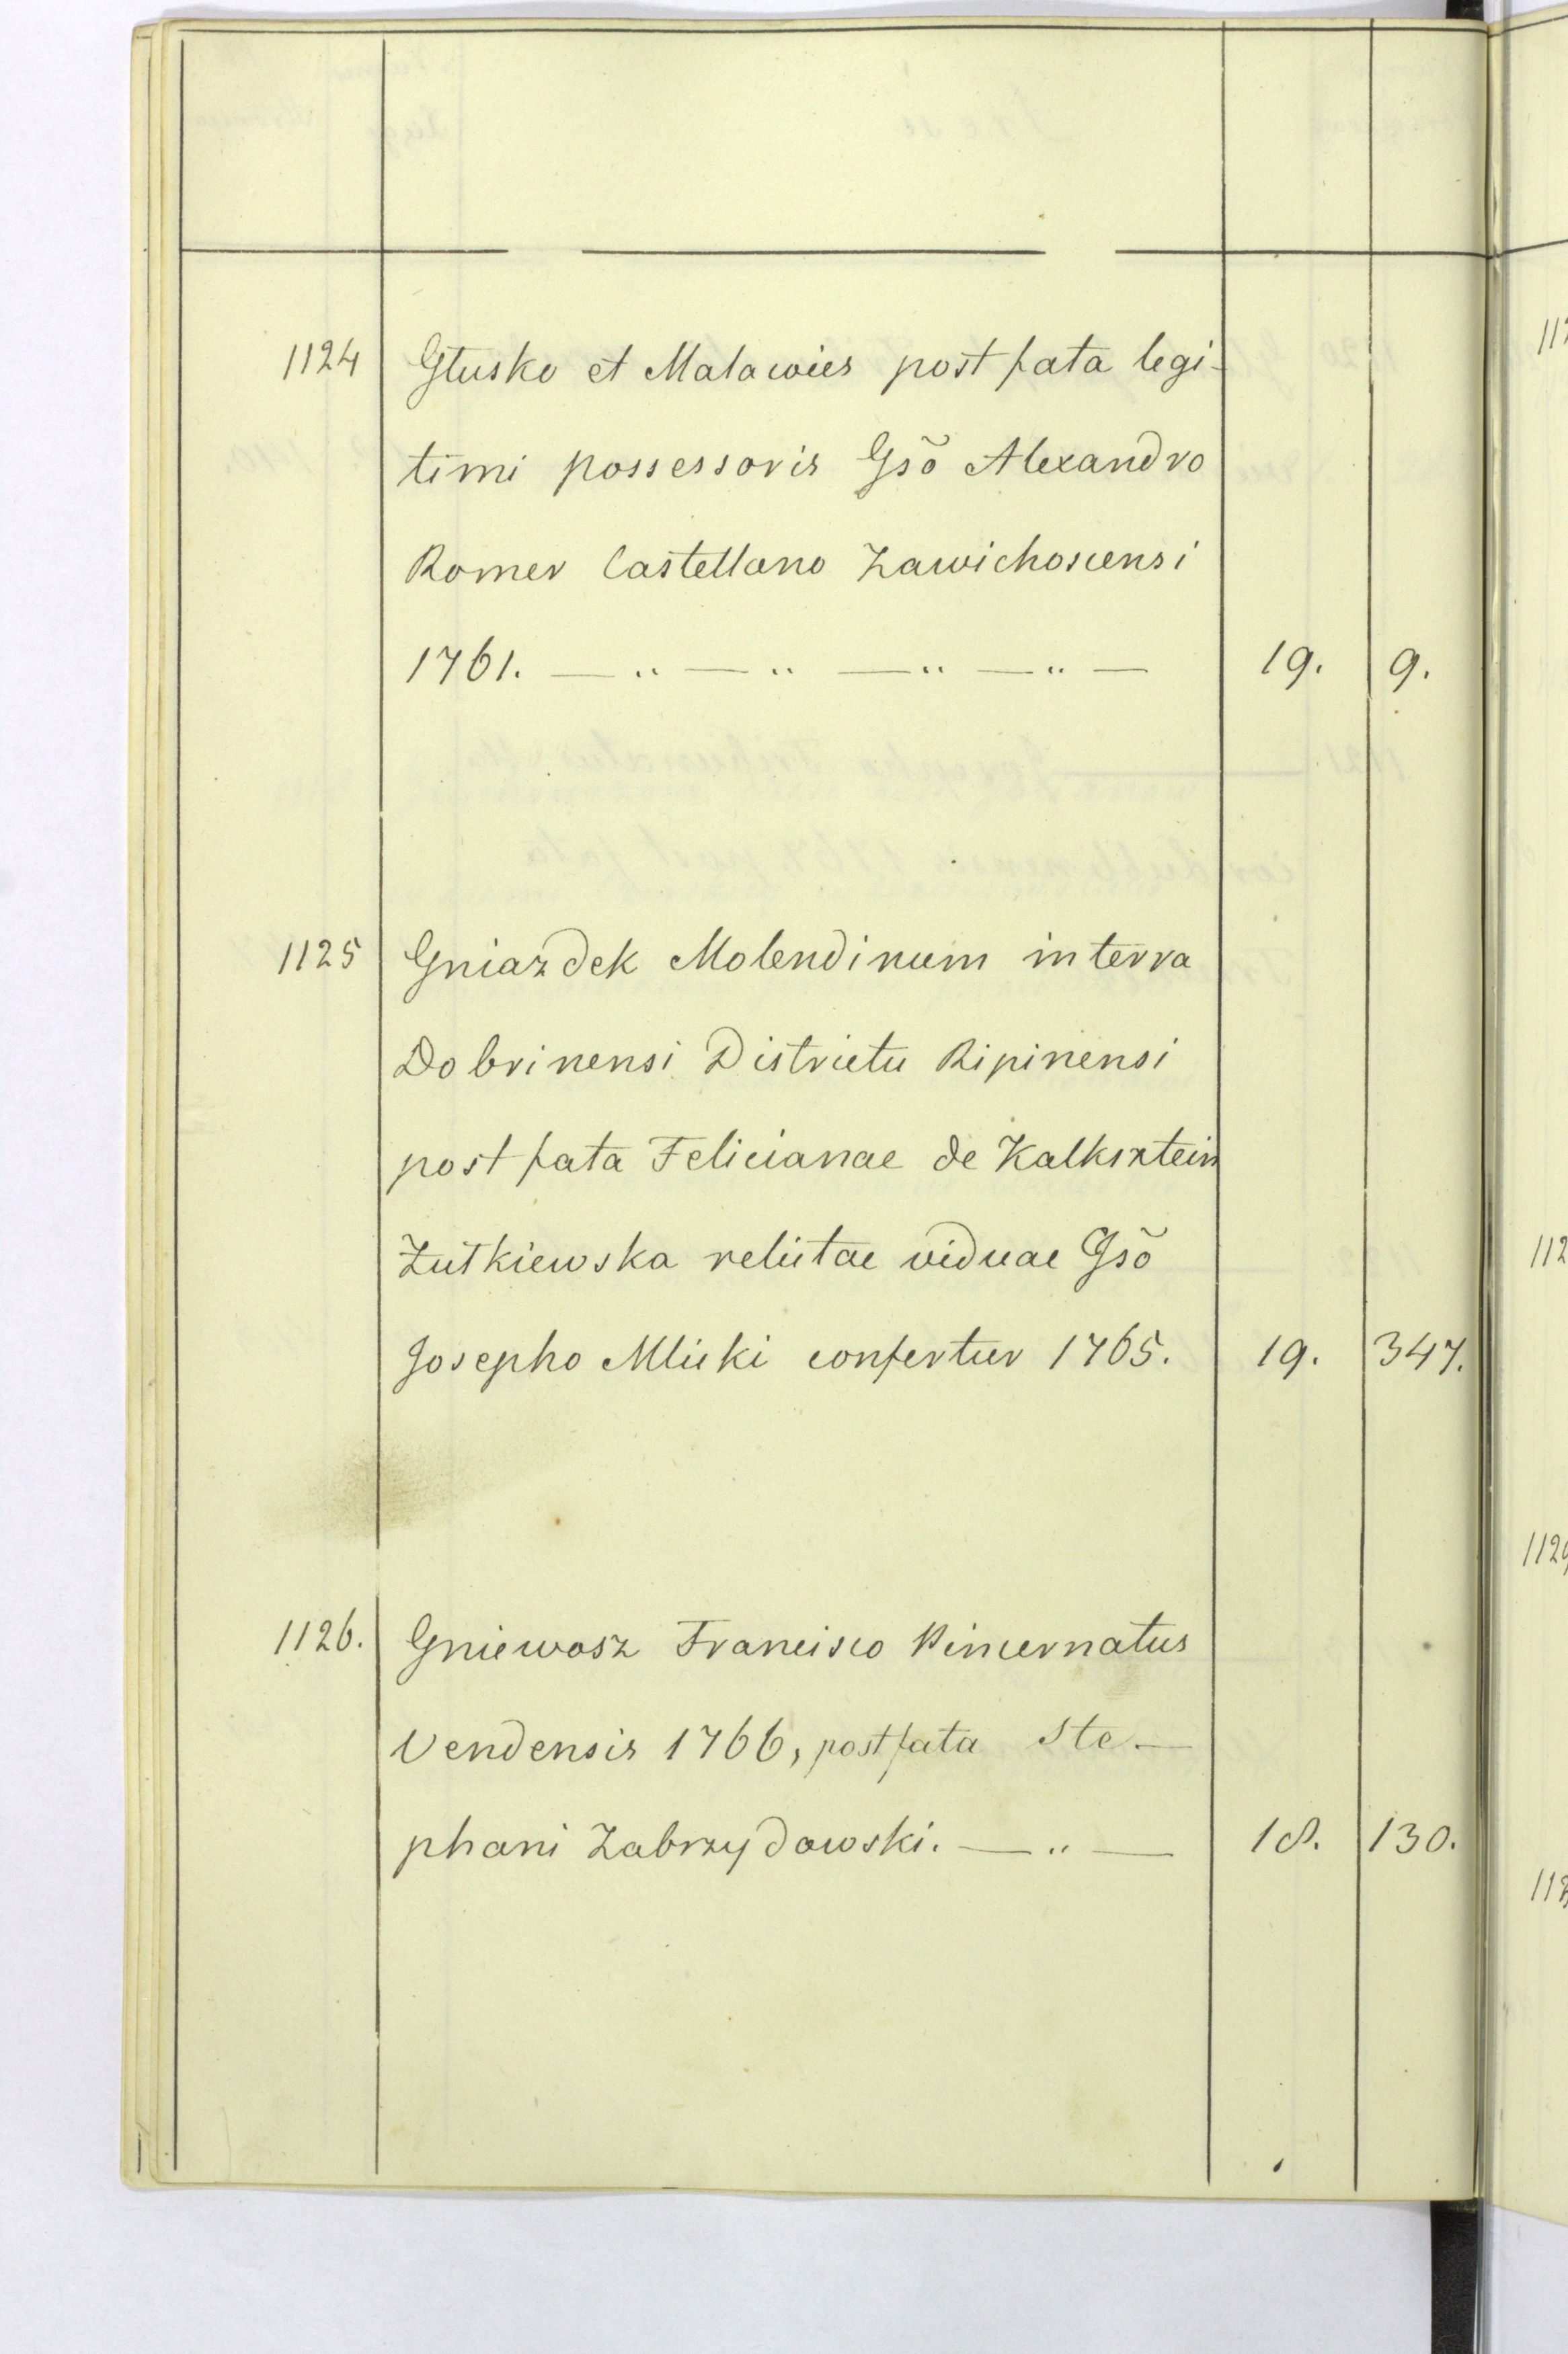 1124 Głusko et Malawies post fata legi-
timi possessoris Gsõ Alexandro
Romer Castellano Zawichoscensi
1761. — „ — „ — „ — „ — 19. 9.
1125 Gniazdek Molendinum in terra
Dobrinensi Districtu Ripinensi
post fata Felicianae de Kalksztein
Żutkiewska relictae viduae Gsõ
Josepho Mlicki confertur 1765. 19. 347.
1126. Gniewosz Francisco Pincernatus
Vendensis 1766, post fata Ste-
phani Zabrzydowski. — „ — 18. 130.